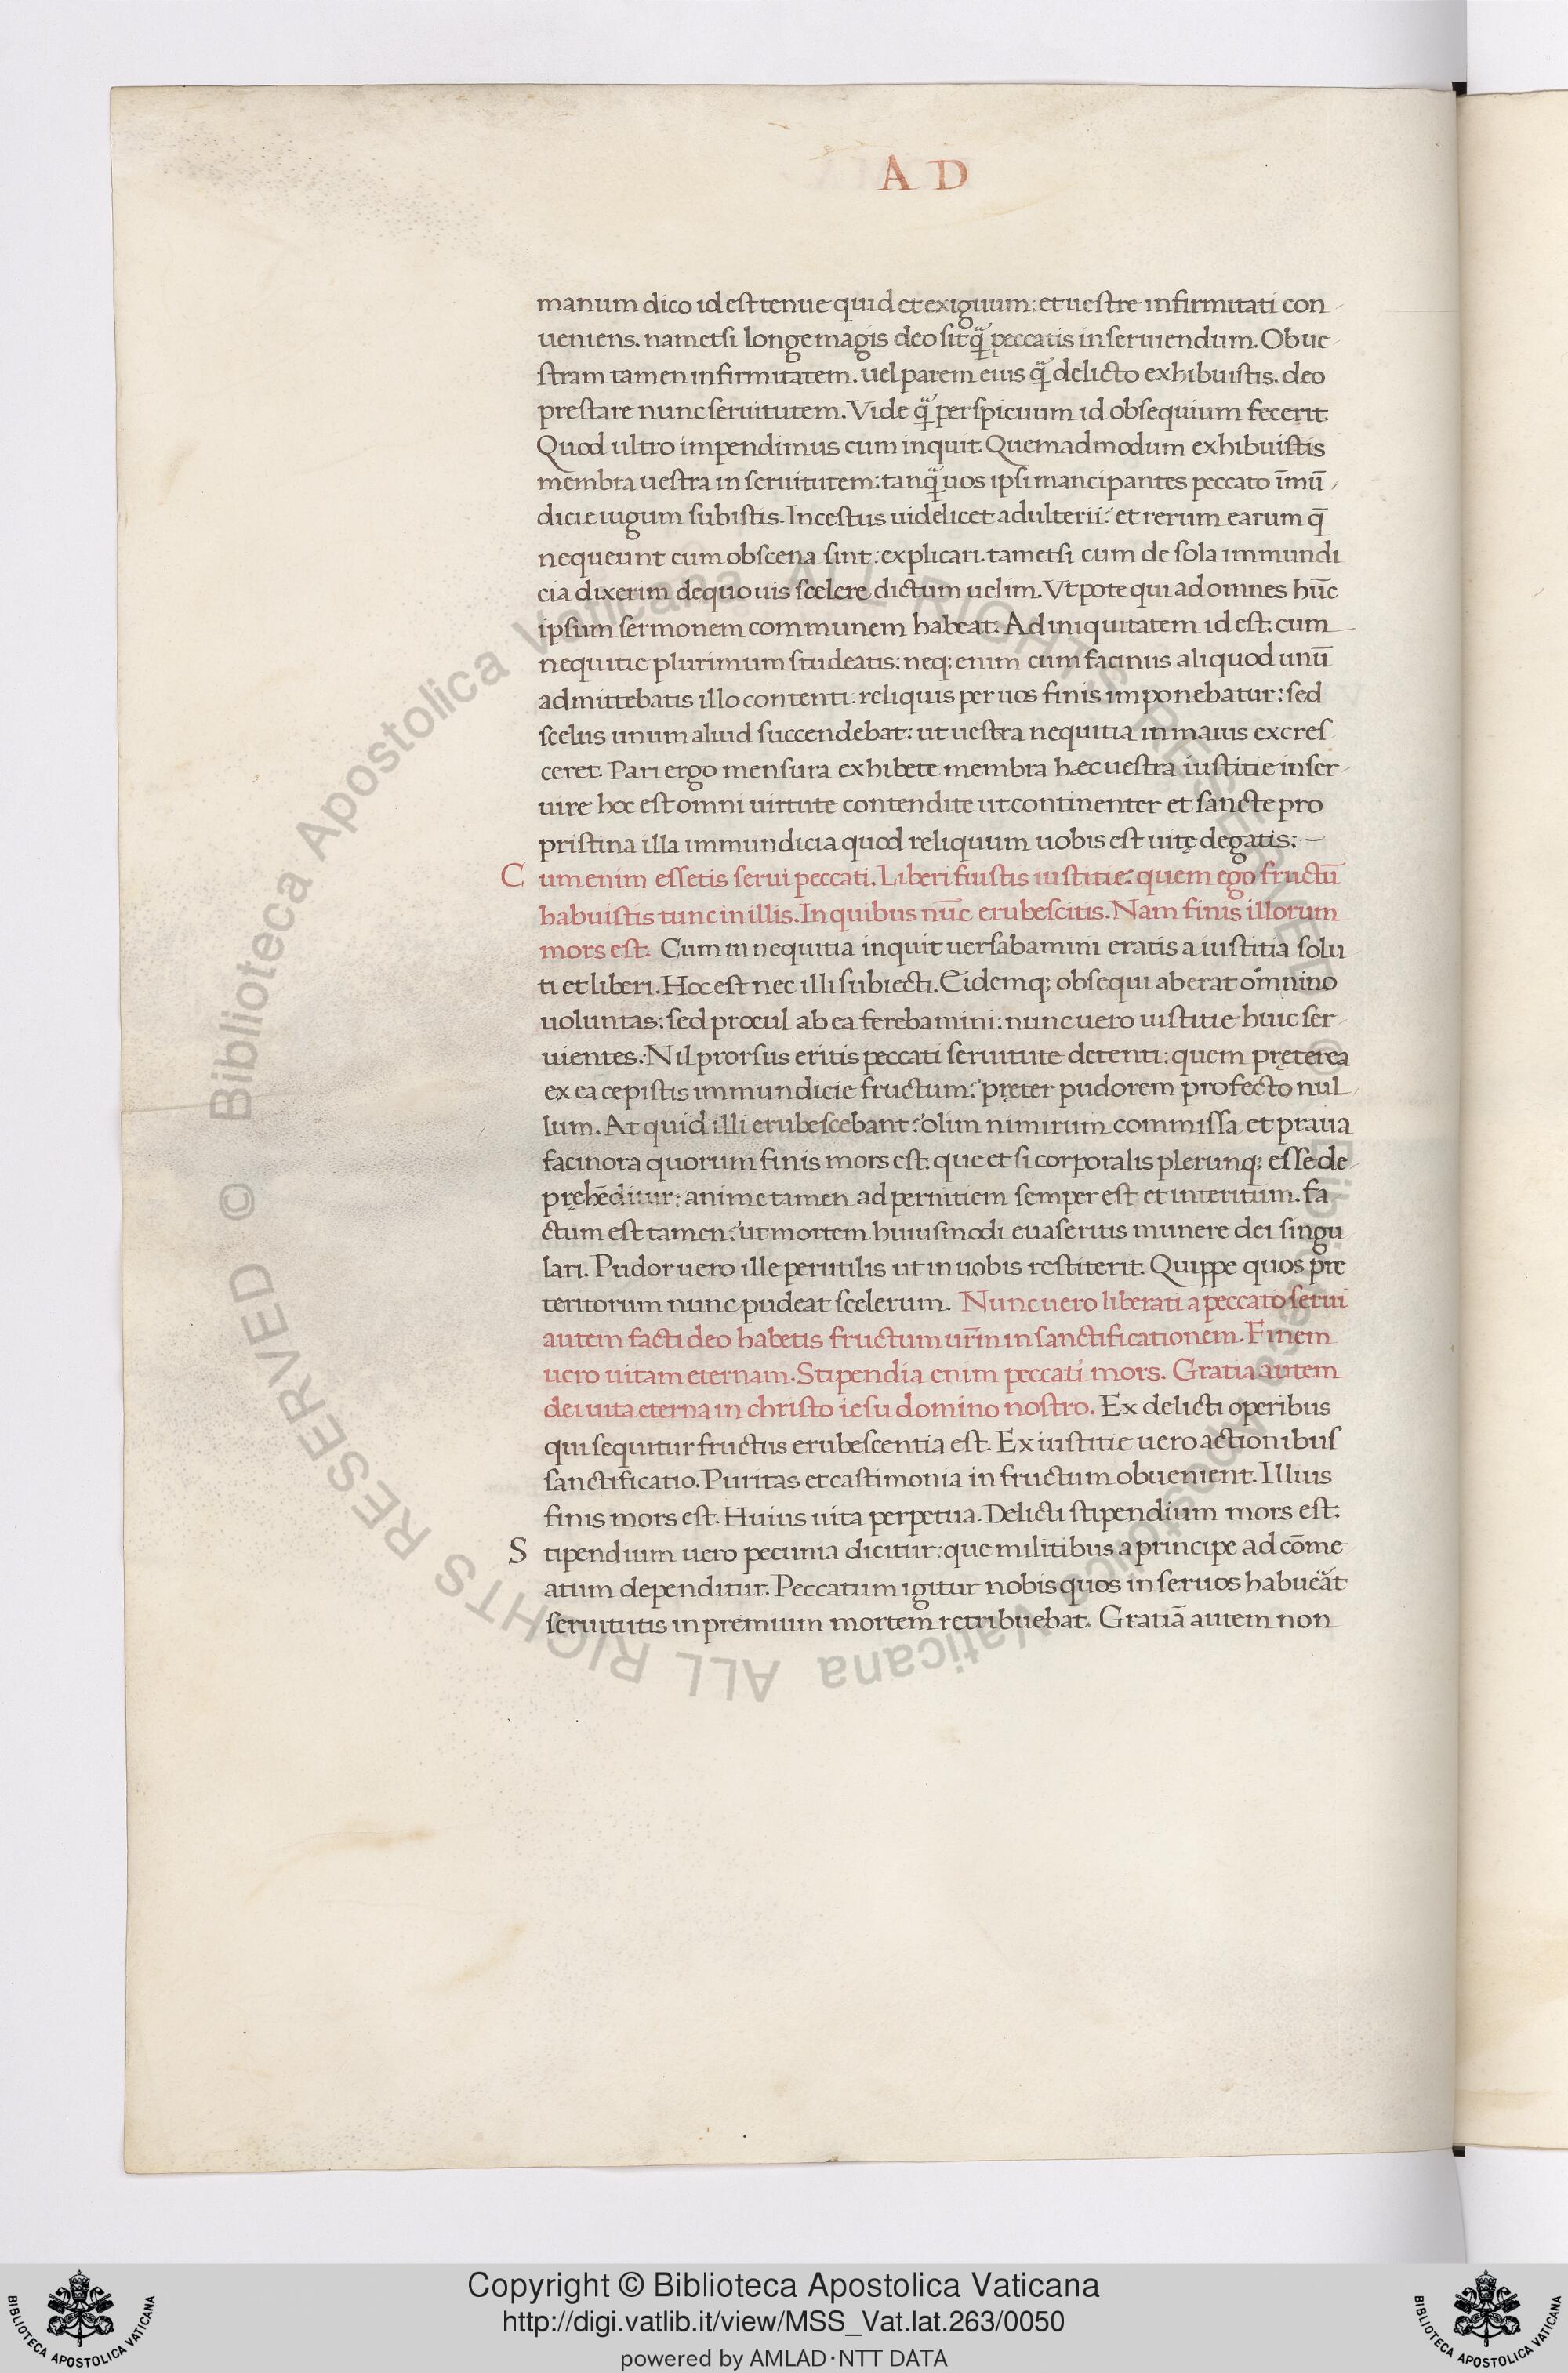 A D
manum dico id est tenue quid et exiguum: et uestre infirmitati con
ueniens. nam etsi longe magis deo sit q̃ peccatis inseruiendum. Ob ue
stram tamen infirmitatem. uel parem eius q̃ delicto exhibuistis. deo
prestare nunc seruitutem. Vide q̃ perspicuum id obsequium fecerit
Quod ultro impendimus cum inquit. Quemadmodum exhibuistis
membra uestra in seruitutem: tanq̃ uos ipsi mancipantes peccato īmū
dicie iugum subistis. Incestus uidelicet adulterii: et rerum earum q̄
nequeunt cum obscena sint: explicari. tametsi cum de sola immundi
cia dixerim de quouis scelere dictum uelim. Vtpote qui ad omnes hūc
ipsum sermonem communem habeat. Ad iniquitatem id est. cum
nequitie plurimum studeatis: neq; enim cum facinus aliquod unū
admittebatis illo contenti. reliquis per uos finis imponebatur: sed
scelus unum aliud succendebat: ut uestra nequitia in maius excres
ceret. Pari ergo mensura exhibete membra hæc uestra iustitie inser
uire hoc est omni uirtute contendite ut continenter et sancte pro
pristina illa immundicia quod reliquum uobis est uitę degatis:—
C um enim essetis serui peccati. Liberi fuistis iustitie: quem ego fructū
habuistis tunc in illis. In quibus nūc erubescitis. Nam finis illorum
mors est. Cum in nequitia inquit uersabamini eratis a iustitia solu
ti et liberi. Hoc est nec illi subiecti. Eidemq; obsequi aberat om̄nino
uoluntas: sed procul ab ea ferebamini: nunc uero iustitie huic ser
uientes. Nil prorsus eritis peccati seruitute detenti: quem pręterea
ex ea cepistis immundicie fructum: pręter pudorem profecto nul
lum. At quid illi erubescebant: olim nimirum commissa et praua
facinora quorum finis mors est. que et si corporalis plerunq; esse de
prehēditur: anime tamen ad pernitiem semper est et interitum. fa
ctum est tamen: ut mortem huiusmodi euaseritis munere dei singu
lari. Pudor uero ille perutilis ut in uobis restiterit. Quippe quos pre
teritorum nunc pudeat scelerum. Nunc uero liberati a peccato serui
autem facti deo habetis fructum ur̄m in sanctificationem. Finem
uero uitam eternam. Stipendia enim peccati mors. Gratia autem
dei uita eterna in christo iesu domino nostro. Ex delicti operibus
qui sequitur fructus erubescentia est. Ex iustitie uero actionibus
sanctificatio. Puritas et castimonia in fructum obuenient. Illius
finis mors est. Huius uita perpetua. Delicti stipendium mors est.
S tipendium uero pecunia dicitur: que militibus a principe ad cōme
atum dependitur. Peccatum igitur nobis quos in seruos habuēat
seruitutis in premium mortem retribuebat. Gratiā autem non
© Biblioteca Apostolica Vaticana ALL RIGHTS RESERVED © Biblioteca Apostolica Vaticana ALL RIGHTS RESERVED
Copyright © Biblioteca Apostolica Vaticana
http://digi.vatlib.it/view/MSS_Vat.lat.263/0050
powered by AMLAD·NTT DATA
BIBLIOTECA APOSTOLICA VATICANA
BIBLIOTECA APOSTOLICA VATICANA